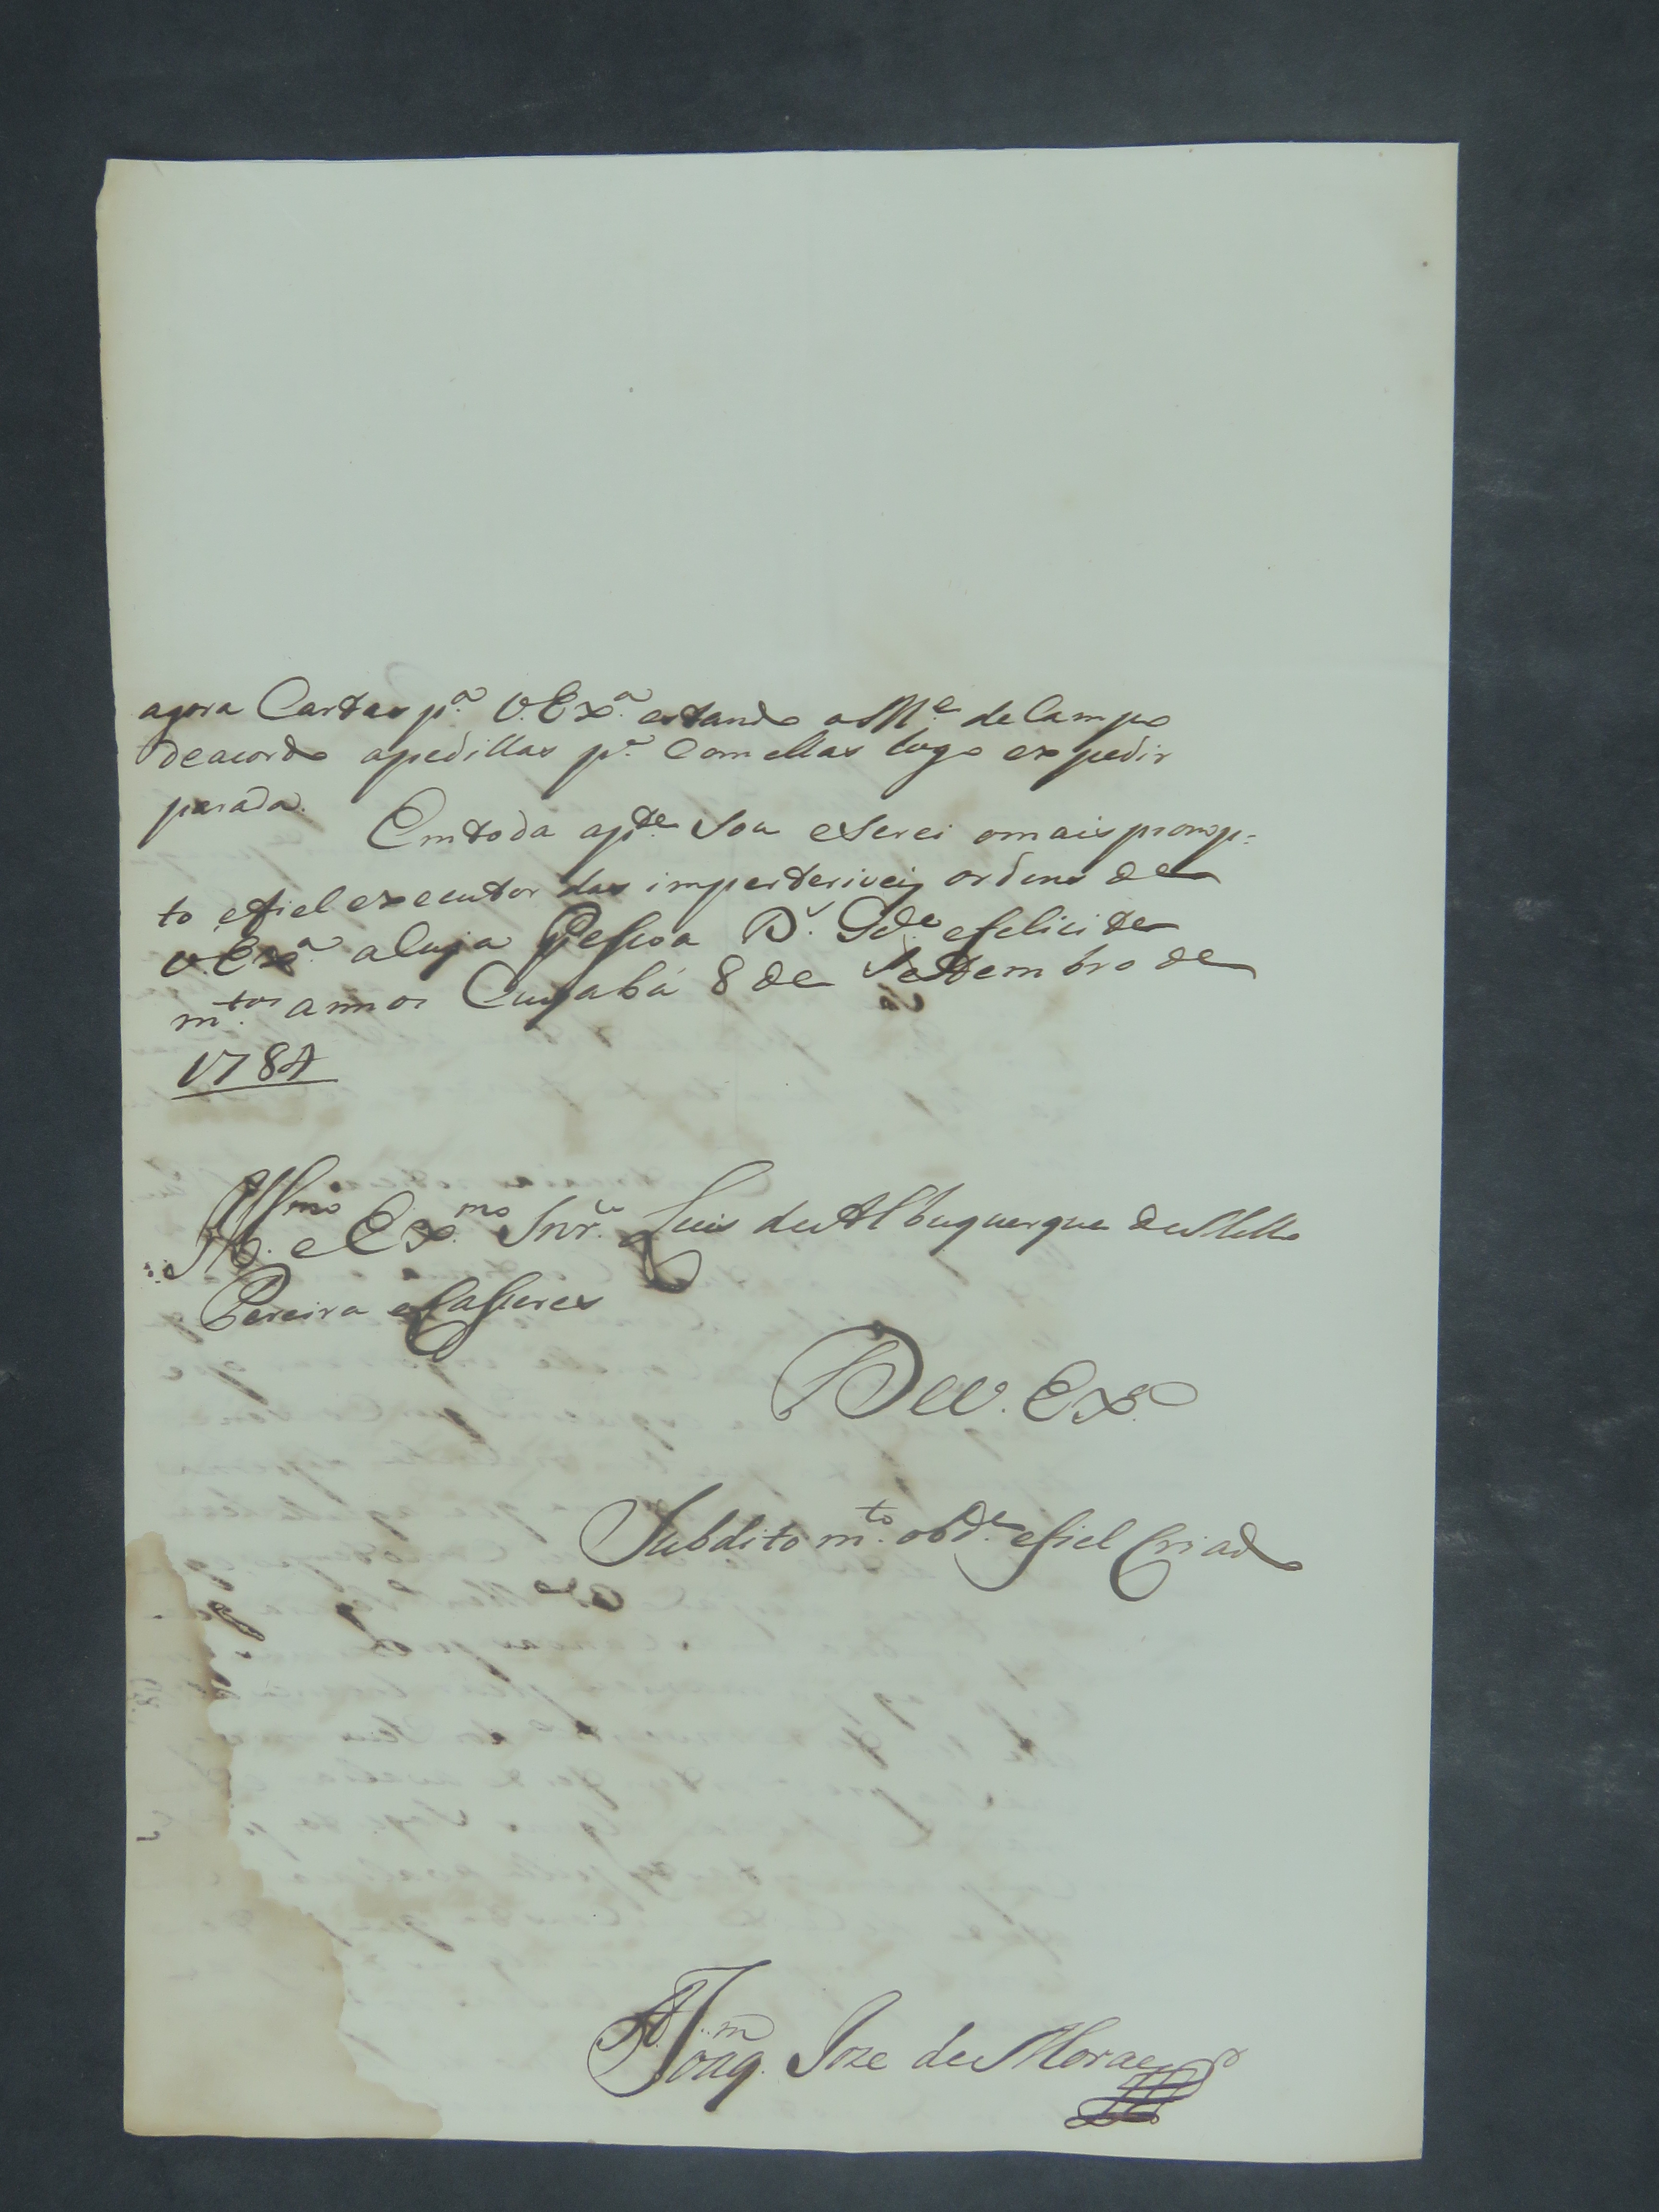 agora Cartas p.ª V. Ex.ª estando o M.e de Campo
de acordo apedillas p.ª Com ellas logo expedir
parada. Em toda a p.te Sou e Serei o mais promp-
to e fiel executor das imperteriveis ordens de
V. Ex.ª a Cuja Pessoa D.s G.de e felicite
m.tos annos Cuyabá 8 de Settembro de
1784
Ill.mo e Ex.mo Snr. Luis de Albuquerque de Mello
Pereira e Casseres
De V. Ex.ª
Subdito m.to obd.e e fiel Criado
Joaq.m Joze de Moraes